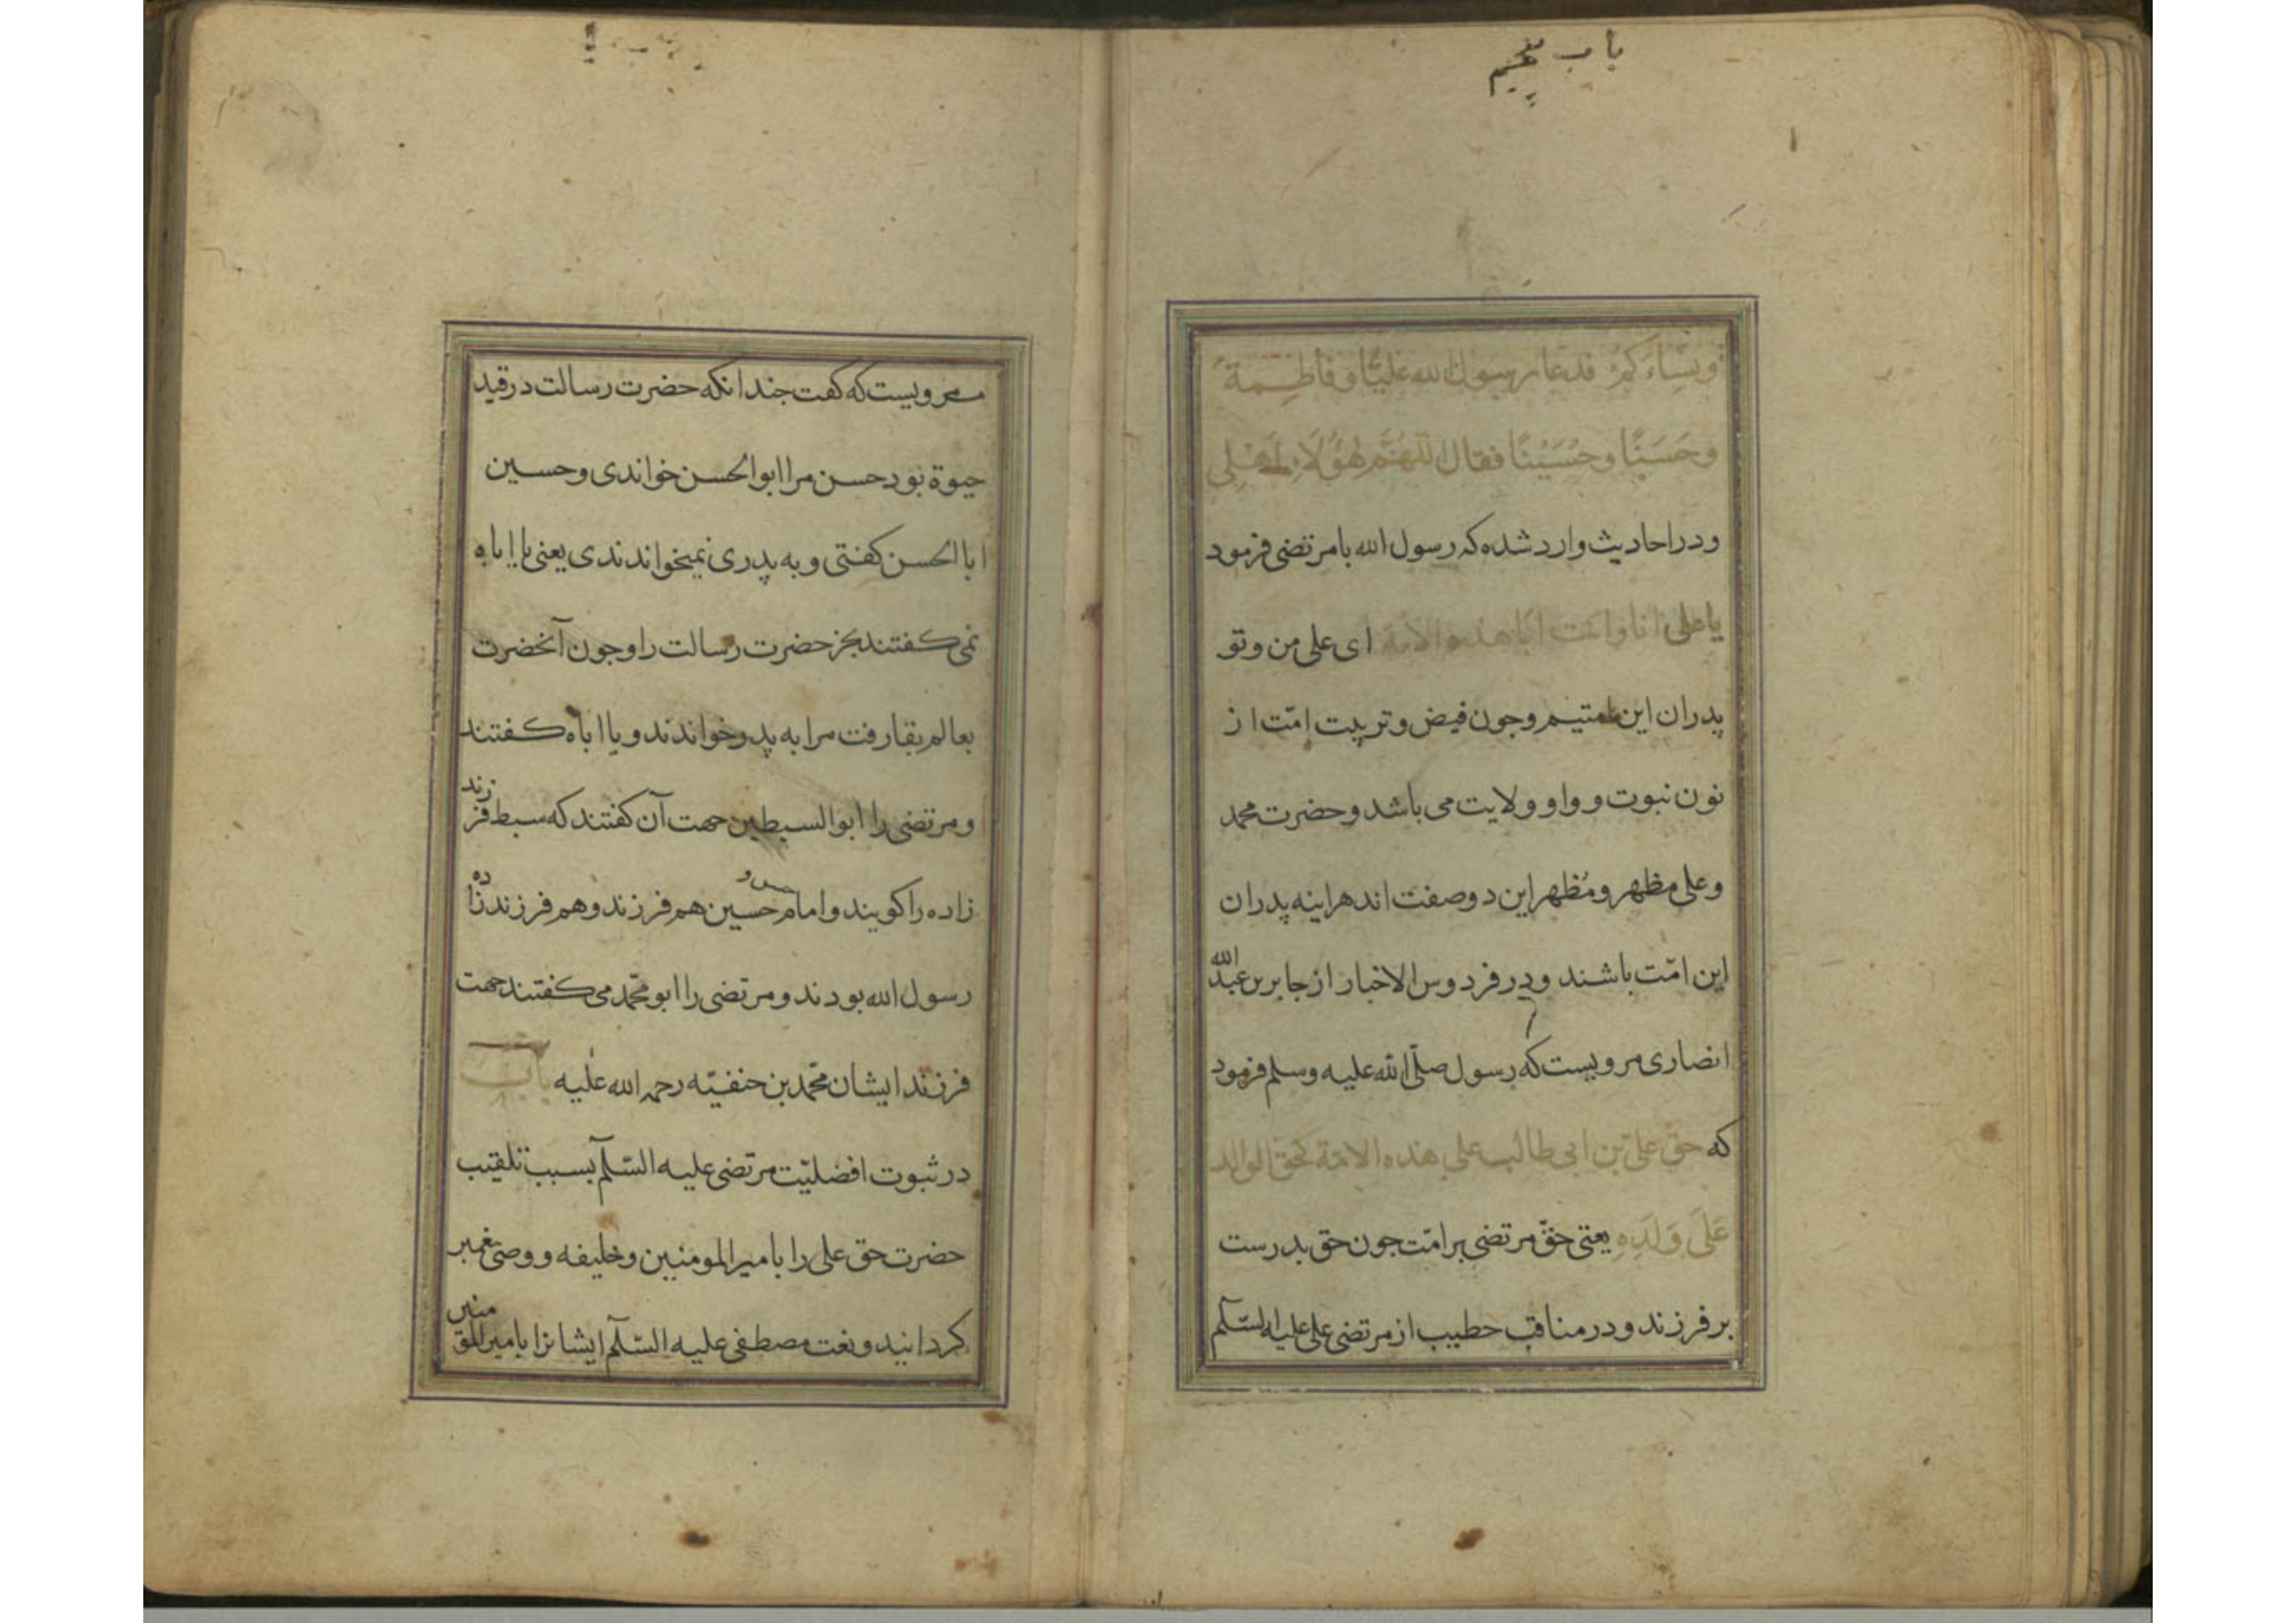 باب پنجم
ونساءكم فدعا رسول الله عليًّا وفاطمة
وحَسَنًا وحُسَيْنًا فقال اللّهُمَّ هٰؤُلَاءِ اَهْلى
ودر احاديث وارد شده كه رسول الله با مرتضى فرمود
يا على انا وانت ابا هذه الامة اى على من وتو
پدران اين امتيم وجون فيض وتربيت امّت از
نون نبوت وواو ولايت مى باشد وحضرت محمد
وعلى مظهر ومُظهر اين دو صفت اند هراينه پدران
اين امّت باشند ودر فردوس الاخبار از جابر بن عبد الله
انصارى مرويست كه رسول صلّى الله عليه وسلم فرمود
كه حق على بن ابى طالب على هذه الامّة كحق الوالد
عَلَى وَلَدِهِ يعنى حقّ مرتضى بر امّت جون حق پدرست
بر فرزند ودر مناقب خطيب از مرتضى على عليه السّلم
مرويست كه كفت جندانكه حضرت رسالت در قيد
حيوة بود حسن مرا ابوالحسن خواندى وحسين
ابا الحسن كفتى وبه پدرى نميخواندندى يعنى يا اباه
نمى كفتند بجز حضرت رسالت را وجون آنحضرت
بعالم بقا رفت مرا به پدر خواندند ويا اباه كفتند
ومرتضى را ابو السبطين جهت آن كفتند كه سبط فرزند
زاده را كويند وامام حسن و حسين هم فرزند وهم فرزند زاده
رسول الله بودند ومرتضى را ابو محمّد مى كفتند جهت
فرزند ايشان محمّد بن حنفيّه رحمه الله عليه باب
در ثبوت افضليّت مرتضى عليه السّلم بسبب تلقيب
حضرت حق على را با مير المومنين وخليفه ووصى پغمبر
كردانيد ونعت مصطفى عليه السّلم ايشانرا بامير المومنين